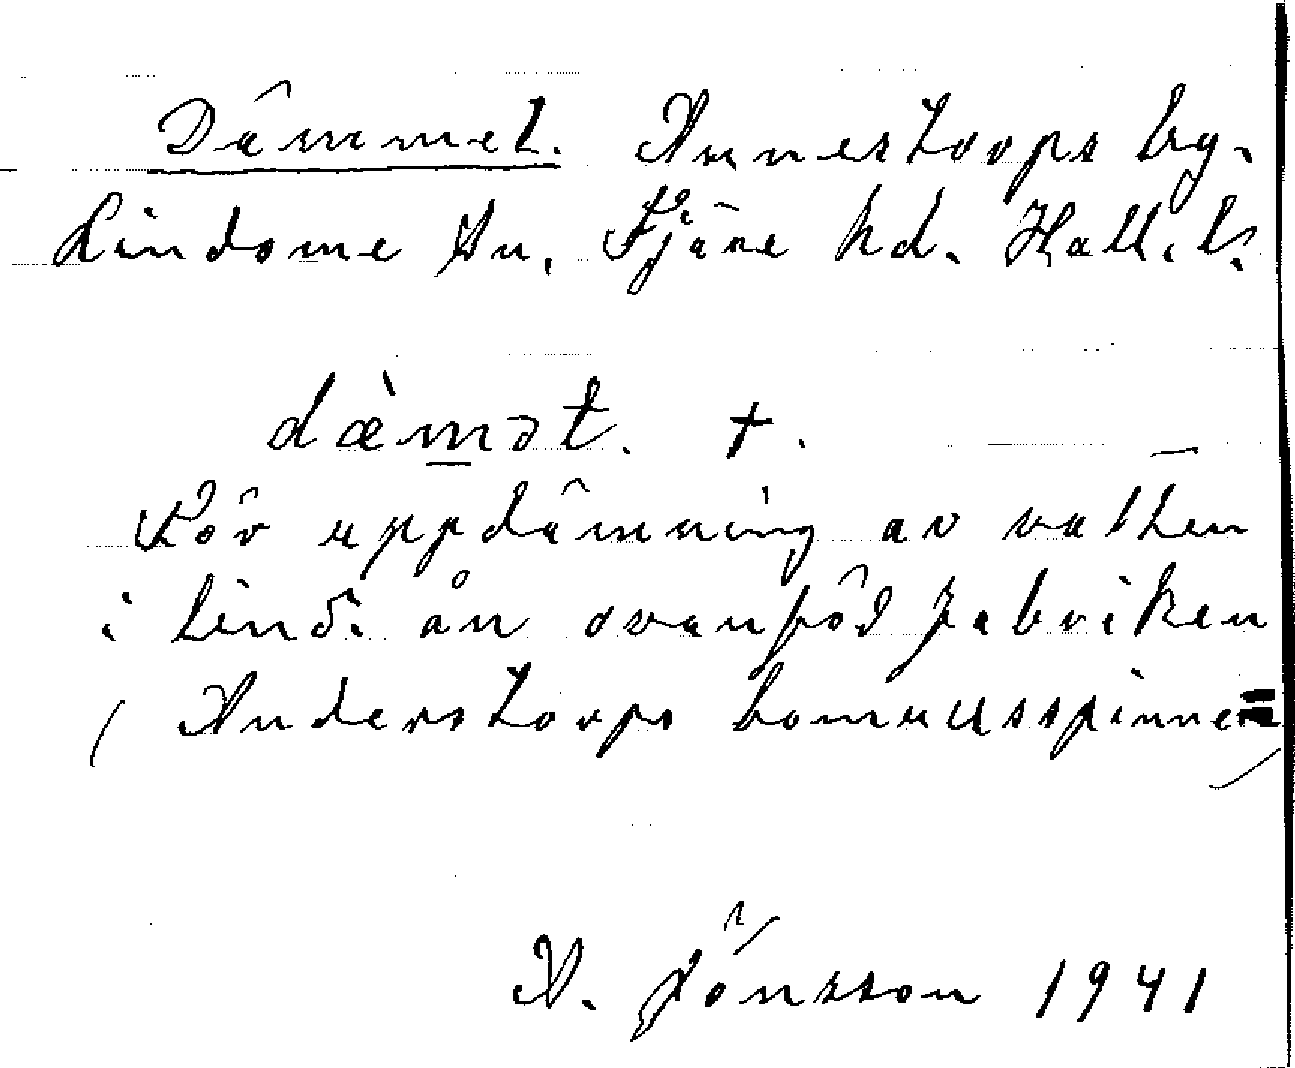 Dämmet. Annestorps by.
Lindome sn. Fjäre hd. Hall. l.
dæ̀mət. +.
För uppdämning av vatten
i Lind. ån ovanför fabriken
( Anderstorps bomullsspinneri
)
A. Jönsson 1941